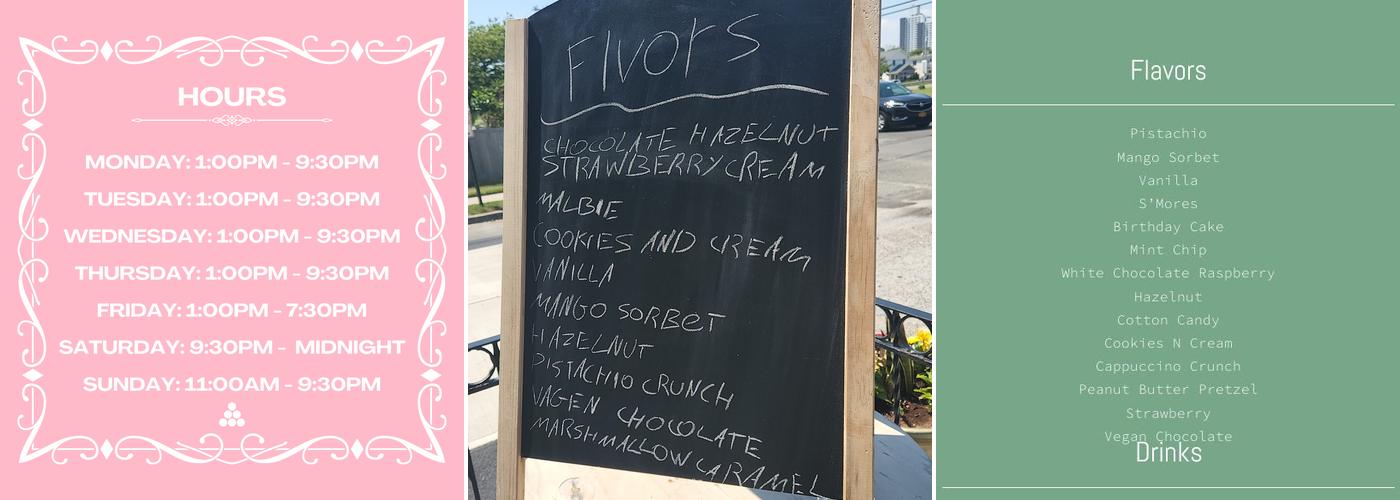 HOURS
MONDAY: 1:00PM - 9:30PM
TUESDAY: 1:00PM - 9:30PM
WEDNESDAY: 1:00PM - 9:30PM
THURSDAY: 1:00PM - 9:30PM
FRIDAY: 1:00PM - 7:30PM
SATURDAY: 9:30PM - MIDNIGHT
SUNDAY: 11:00AM - 9:30PM
Flvors
CHOCOLATE HAZELNUT
STRAWBERRY CREAM
MALBIE
COOKIES AND CREAM
VANILLA
MANGO SORBET
HAZELNUT
PISTACHIO CRUNCH
VAGEN CHOCOLATE
MARSHMALLOW CARAMEL
Flavors
Pistachio
Mango Sorbet
Vanilla
S'Mores
Birthday Cake
Mint Chip
White Chocolate Raspberry
Hazelnut
Cotton Candy
Cookies N Cream
Cappuccino Crunch
Peanut Butter Pretzel
Strawberry
Vegan Chocolate
Drinks